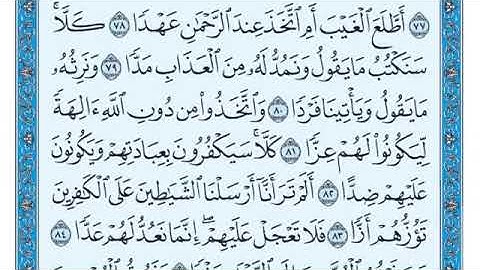 ٧٧ أَطَّلَعَ الْغَيْبَ أَمِ اتَّخَذَ عِندَ الرَّحْمَٰنِ عَهْدًا ٧٨ كَلَّا ۚ
سَنَكْتُبُ مَا يَقُولُ وَنَمُدُّ لَهُ مِنَ الْعَذَابِ مَدًّا ٧٩ وَنَرِثُهُ
مَا يَقُولُ وَيَأْتِينَا فَرْدًا ٨٠ وَاتَّخَذُوا مِن دُونِ اللَّهِ آلِهَةً
لِّيَكُونُوا لَهُمْ عِزًّا ٨١ كَلَّا ۚ سَيَكْفُرُونَ بِعِبَادَتِهِمْ وَيَكُونُونَ
عَلَيْهِمْ ضِدًّا ٨٢ أَلَمْ تَرَ أَنَّا أَرْسَلْنَا الشَّيَاطِينَ عَلَى الْكَافِرِينَ
تَؤُزُّهُمْ أَزًّا ٨٣ فَلَا تَعْجَلْ عَلَيْهِمْ ۖ إِنَّمَا نَعُدُّ لَهُمْ عَدًّا ٨٤